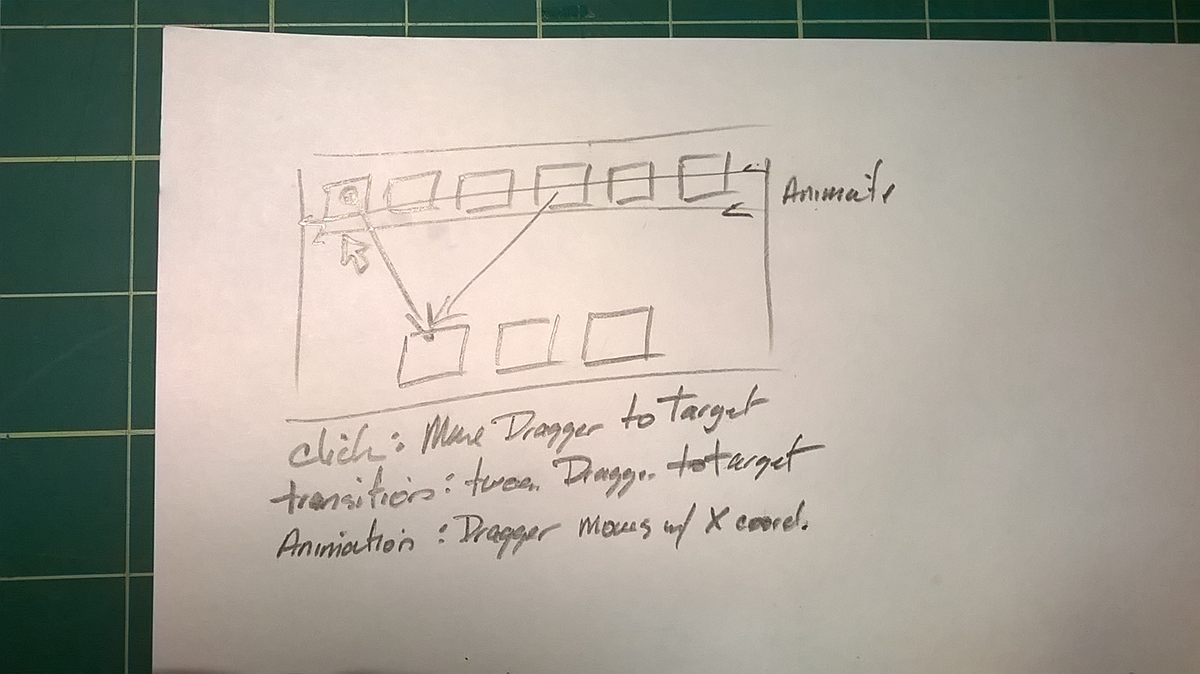 Animate
click: Move Dragger to Target
transition: tween Dragger to target
Animation: Dragger moves w/ X coord.